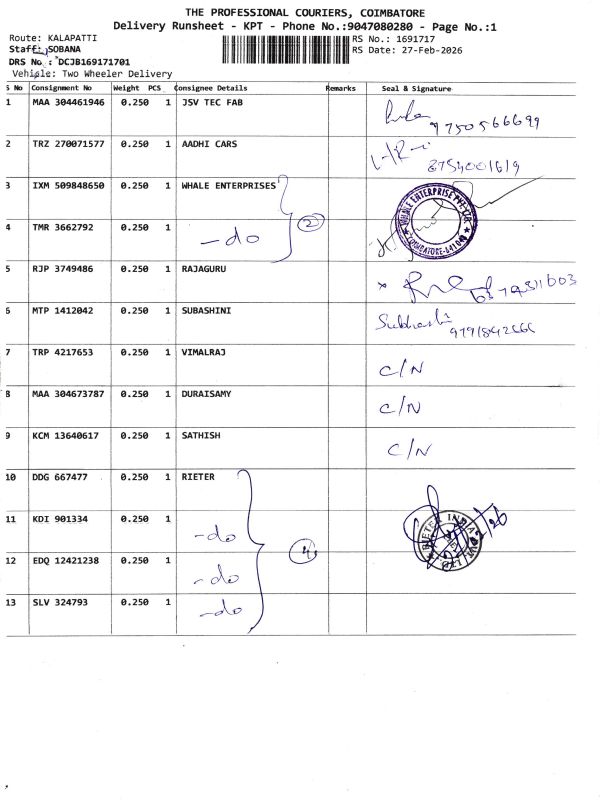 THE PROFESSIONAL COURIERS, COIMBATORE
Delivery Runsheet - KPT - Phone No.:9047080280 - Page No.:1
Route: KALAPATTI
RS No.: 1691717
Staff: SOBANA
RS Date: 27-Feb-2026
DRS No : DCJB169171701
Vehicle: Two Wheeler Delivery
S No Consignment No Weight PCS Consignee Details Remarks Seal & Signature
1 MAA 304461946 0.250 1 JSV TEC FAB
9750566699
2 TRZ 270071577 0.250 1 AADHI CARS
8754001619
3 IXM 509848650 0.250 1 WHALE ENTERPRISES
WHALE ENTERPRISE PVT LTD
COIMBATORE-641048
4 TMR 3662792 0.250 1 -do 2
5 RJP 3749486 0.250 1 RAJAGURU
6 MTP 1412042 0.250 1 SUBASHINI
Subhashi
7 TRP 4217653 0.250 1 VIMALRAJ C/N
8 MAA 304673787 0.250 1 DURAISAMY C/N
9 KCM 13640617 0.250 1 SATHISH C/N
10 DDG 667477 0.250 1 RIETER
11 KDI 901334 0.250 1 -do 4
RIETER INDIA PVT. LTD.
12 EDQ 12421238 0.250 1 -do
13 SLV 324793 0.250 1 -do